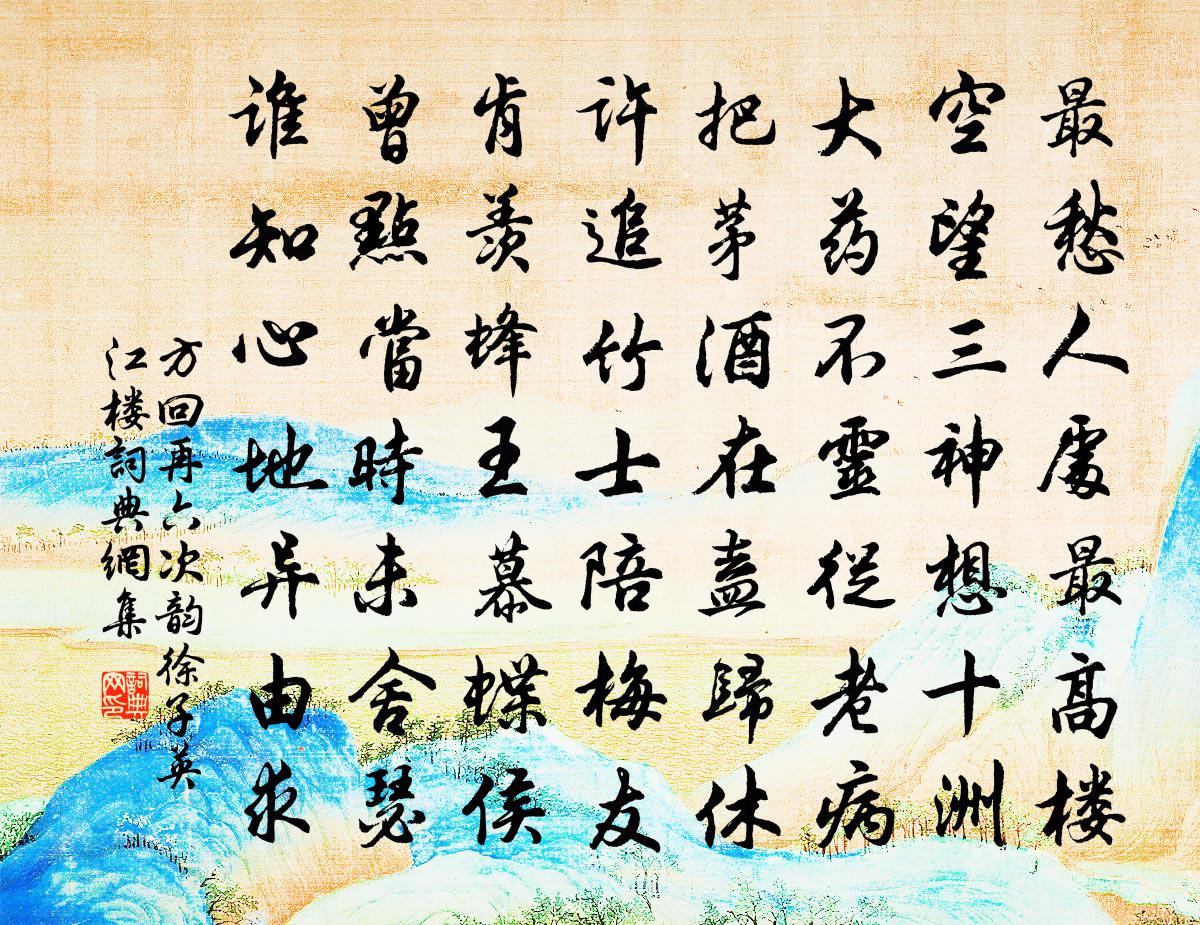 最愁人處最高楼
空望三神想十洲
大药不靈從老病
把茅酒在盍歸休
许追竹士陪梅友
肯羡蜂王慕蝶侯
曾點當時未舍瑟
谁知心地异由求
方回再六次韵徐子英
江楼詞典網集
詞典
网印